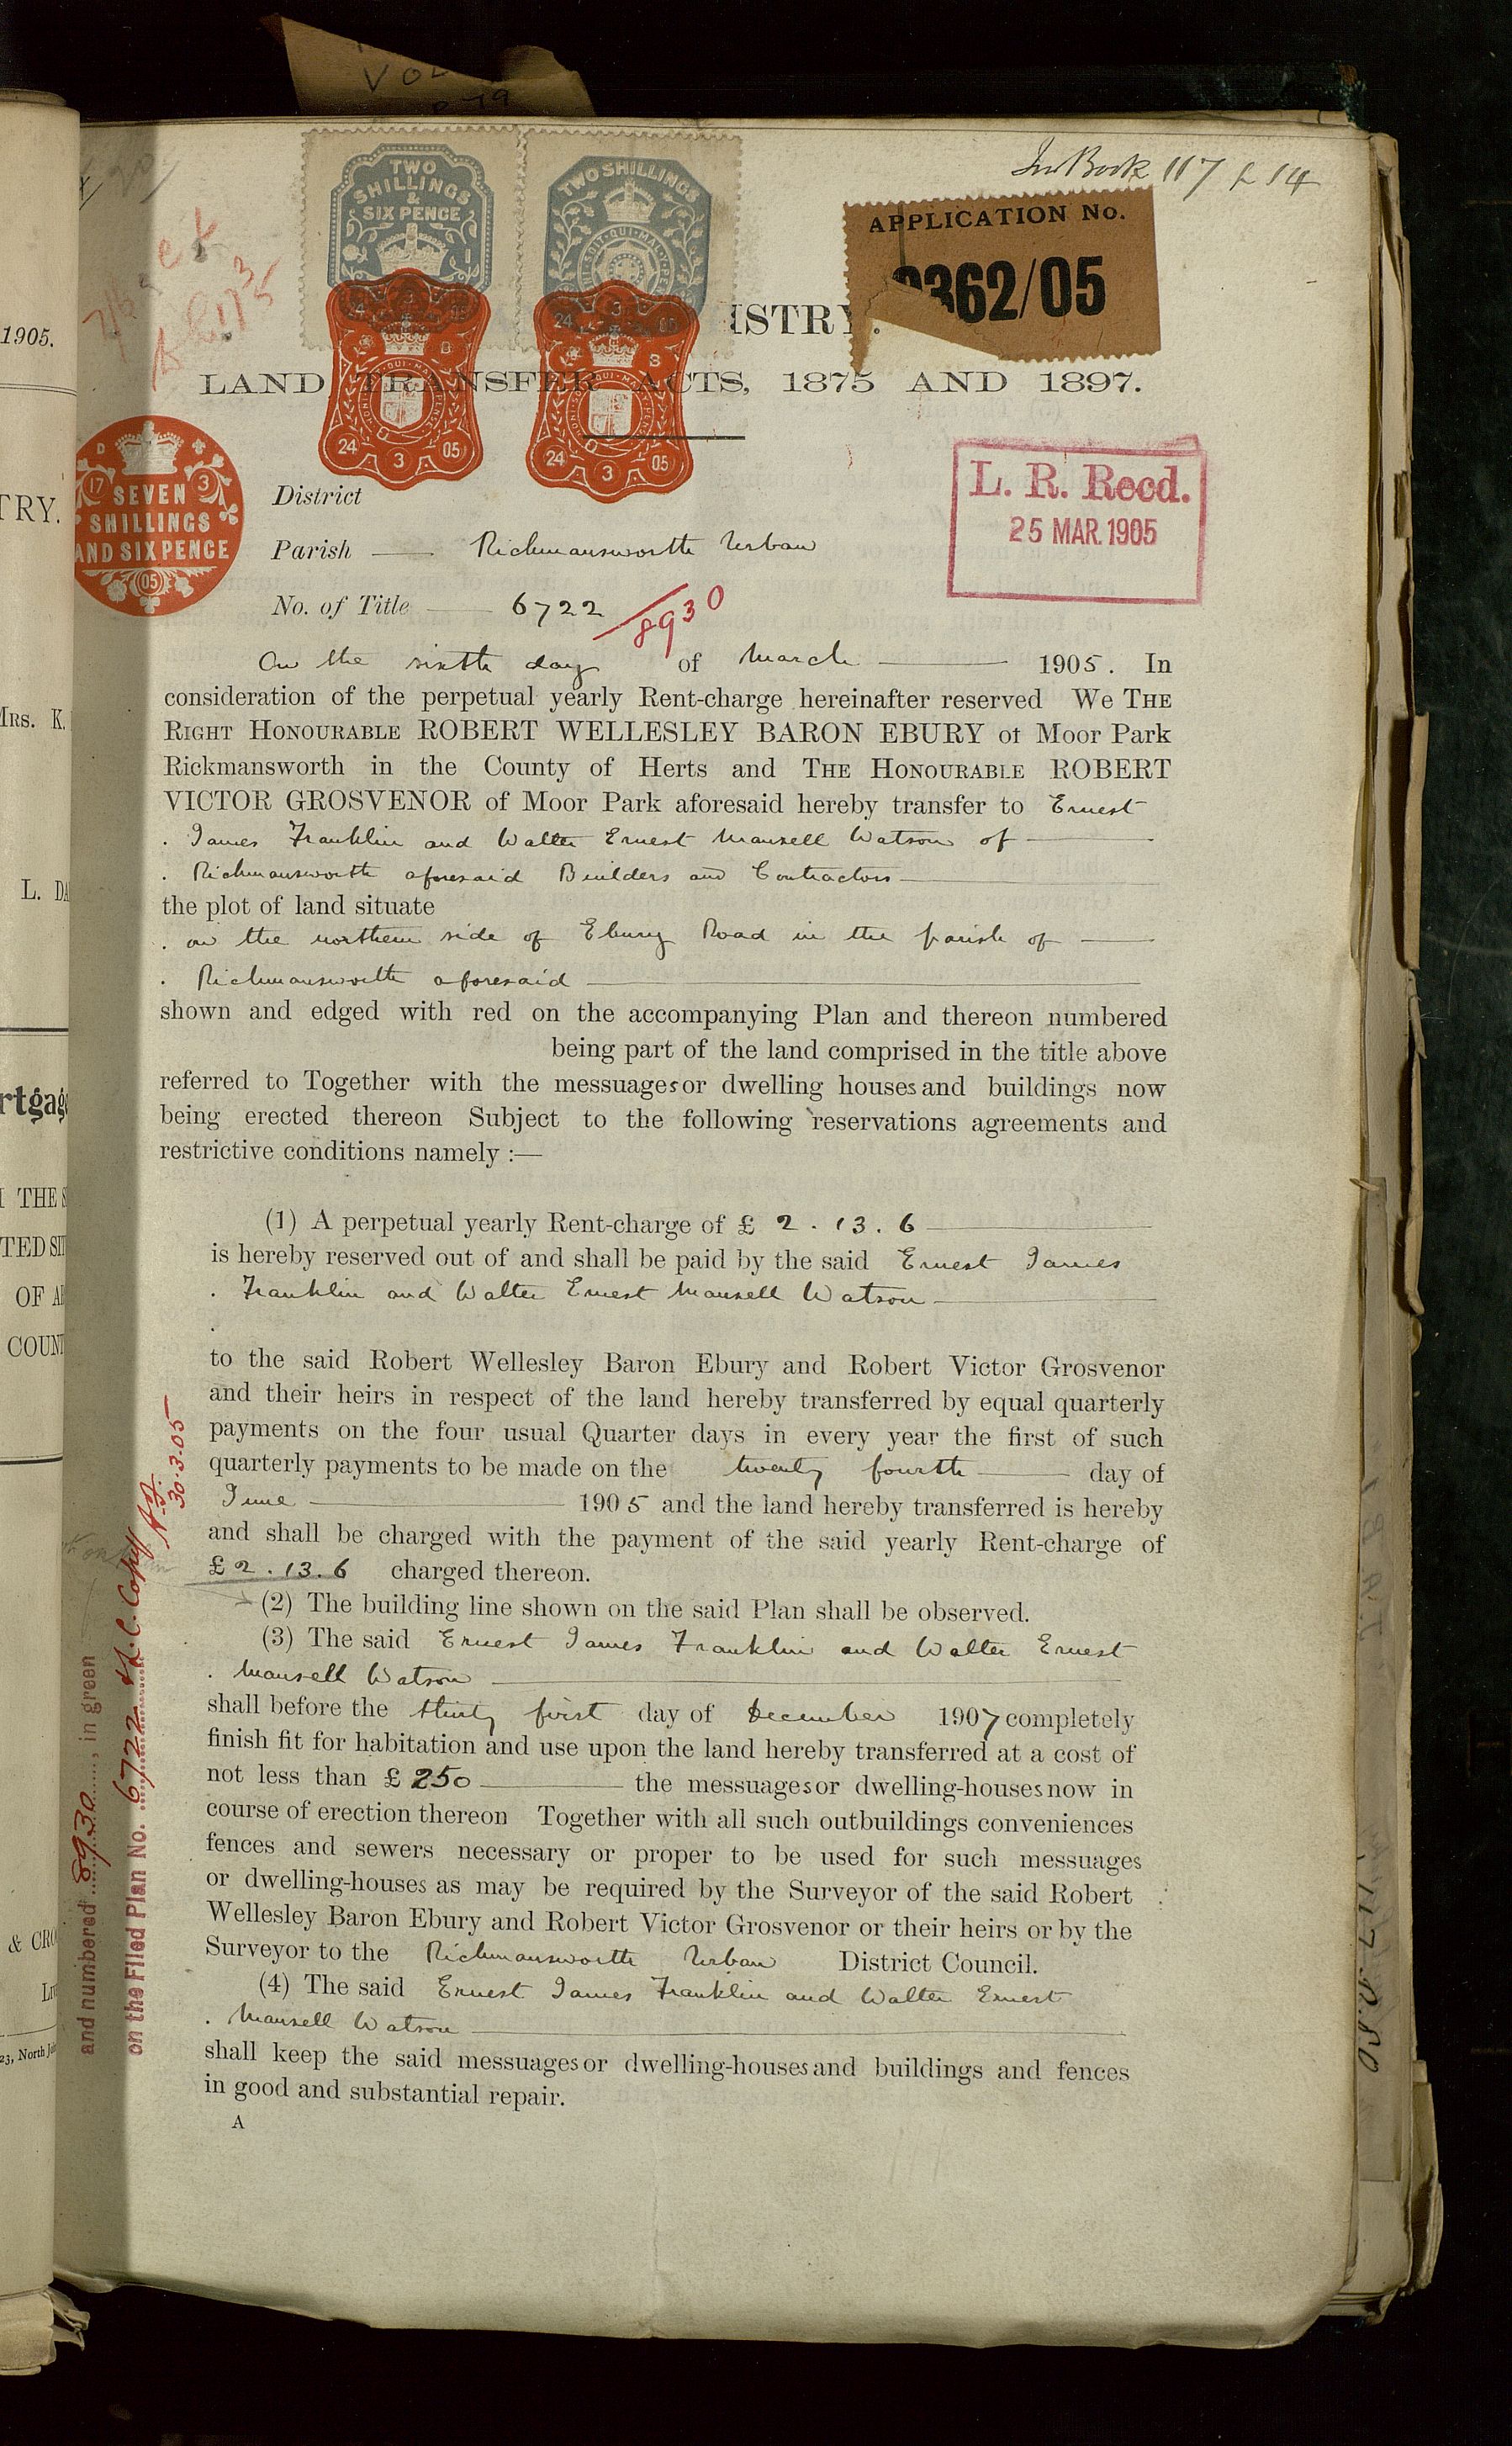 VOL
Ins Book 117 f 14
TWO
SHILLINGS
&
SIX PENCE
TWO SHILLINGS
APPLICATION No.
362/05
ISTRY.
LAND TRANSFER ACTS, 1875 AND 1897.
24 3 05
24 3 05
17 3
SEVEN
SHILLINGS
AND SIX PENCE
05
L. R. Recd.
25 MAR. 1905
District
Parish — Rickmansworth Urban
No. of Title — 6722 / 8930
On the sixth day of March — 1905. In
consideration of the perpetual yearly Rent-charge hereinafter reserved We THE
RIGHT HONOURABLE ROBERT WELLESLEY BARON EBURY of Moor Park
Rickmansworth in the County of Herts and THE HONOURABLE ROBERT
VICTOR GROSVENOR of Moor Park aforesaid hereby transfer to Ernest
James Franklin and Walter Ernest Mansell Watson of
Rickmansworth aforesaid Builders and Contractors
the plot of land situate
on the northern side of Ebury Road in the parish of
Rickmansworth aforesaid
shown and edged with red on the accompanying Plan and thereon numbered
being part of the land comprised in the title above
referred to Together with the messuages or dwelling houses and buildings now
being erected thereon Subject to the following reservations agreements and
restrictive conditions namely :—
(1) A perpetual yearly Rent-charge of £ 2 . 13 . 6
is hereby reserved out of and shall be paid by the said Ernest James
Franklin and Walter Ernest Mansell Watson
to the said Robert Wellesley Baron Ebury and Robert Victor Grosvenor
and their heirs in respect of the land hereby transferred by equal quarterly
payments on the four usual Quarter days in every year the first of such
quarterly payments to be made on the twenty fourth — day of
June — 1905 and the land hereby transferred is hereby
and shall be charged with the payment of the said yearly Rent-charge of
£ 2 . 13 . 6 charged thereon.
(2) The building line shown on the said Plan shall be observed.
(3) The said Ernest James Franklin and Walter Ernest
Mansell Watson
shall before the thirty first day of December 1907 completely
finish fit for habitation and use upon the land hereby transferred at a cost of
not less than £ 250 — the messuages or dwelling-houses now in
course of erection thereon Together with all such outbuildings conveniences
fences and sewers necessary or proper to be used for such messuages
or dwelling-houses as may be required by the Surveyor of the said Robert
Wellesley Baron Ebury and Robert Victor Grosvenor or their heirs or by the
Surveyor to the Rickmansworth Urban District Council.
(4) The said Ernest James Franklin and Walter Ernest
Mansell Watson
shall keep the said messuages or dwelling-houses and buildings and fences
in good and substantial repair.
A
and numbered 8930, in green
on the Filed Plan No. 6722
30.3.05
1905.
TRY.
MRS. K.
L. DA
rtgage
THE S
TED SIT
OF A
COUNT
& CRO
23, North